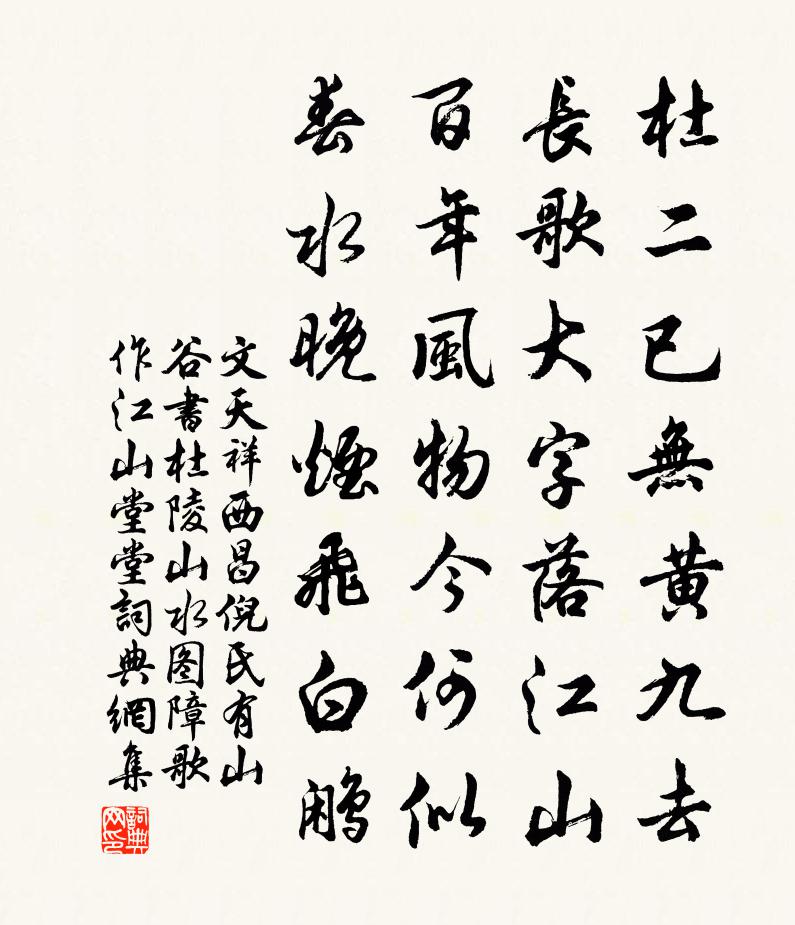 杜二已無黄九去
長歌大字落江山
百年風物今何似
春水晚煙飛白鷳
文天祥西昌倪氏有山
谷書杜陵山水图障歌
作江山堂堂詞典網集
詞典网印